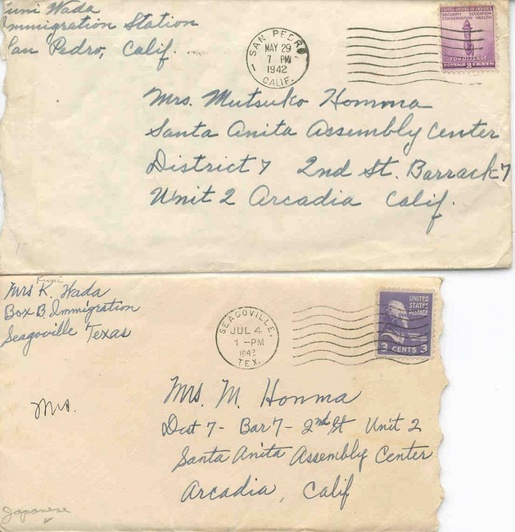 Fumi Wada
Immigration Station
San Pedro, Calif.
SAN PEDRO
MAY 29
7 PM
1942
CALIF.
FOR DEFENSE
Mrs. Mutsuko Homma
Santa Anita Assembly Center
District 7 2nd St. Barrack 7
Unit 2 Arcadia Calif.
Fumi
Mrs K. Wada
Box B. Immigration
Seagoville Texas
SEAGOVILLE,
JUL 4
1-PM
1942
TEX.
UNITED
STATES
POSTAGE
3 CENTS 3
Mrs.
Mrs. M. Honma
Dist 7 - Bar 7 - 2nd St Unit 2
Santa Anita Assembly Center
Arcadia, Calif
Japanese